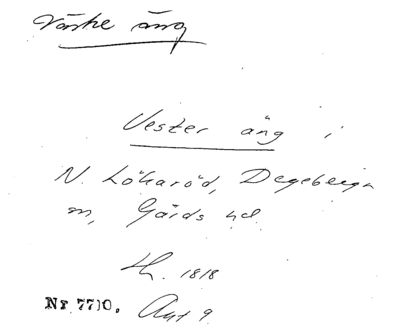 Västre äng
Vester äng i
N. Lökaröd, Degeberga
sn, Gärds hd
Lh. 1818
Nr 7710. Akt 9